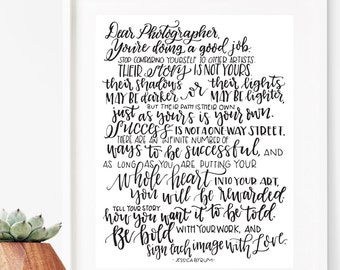 Dear Photographer,
You're doing a good job.
STOP COMPARING YOURSELF TO OTHER ARTISTS.
THEIR Story IS NOT YOURS.
their shadows or their lights
MAY BE darker MAY BE lighter,
BUT THEIR PATH IS THEIR OWN.
just as yours is your own.
SUCCESS IS NOT A ONE WAY STREET.
THERE ARE AN INFINITE NUMBER OF
ways to be successful, AND
AS LONG AS YOU ARE PUTTING YOUR
Whole heart INTO YOUR ART,
you will be rewarded.
TELL YOUR STORY
how you want it to be told.
BE bold WITH YOUR WORK, AND
sign each image with Love.